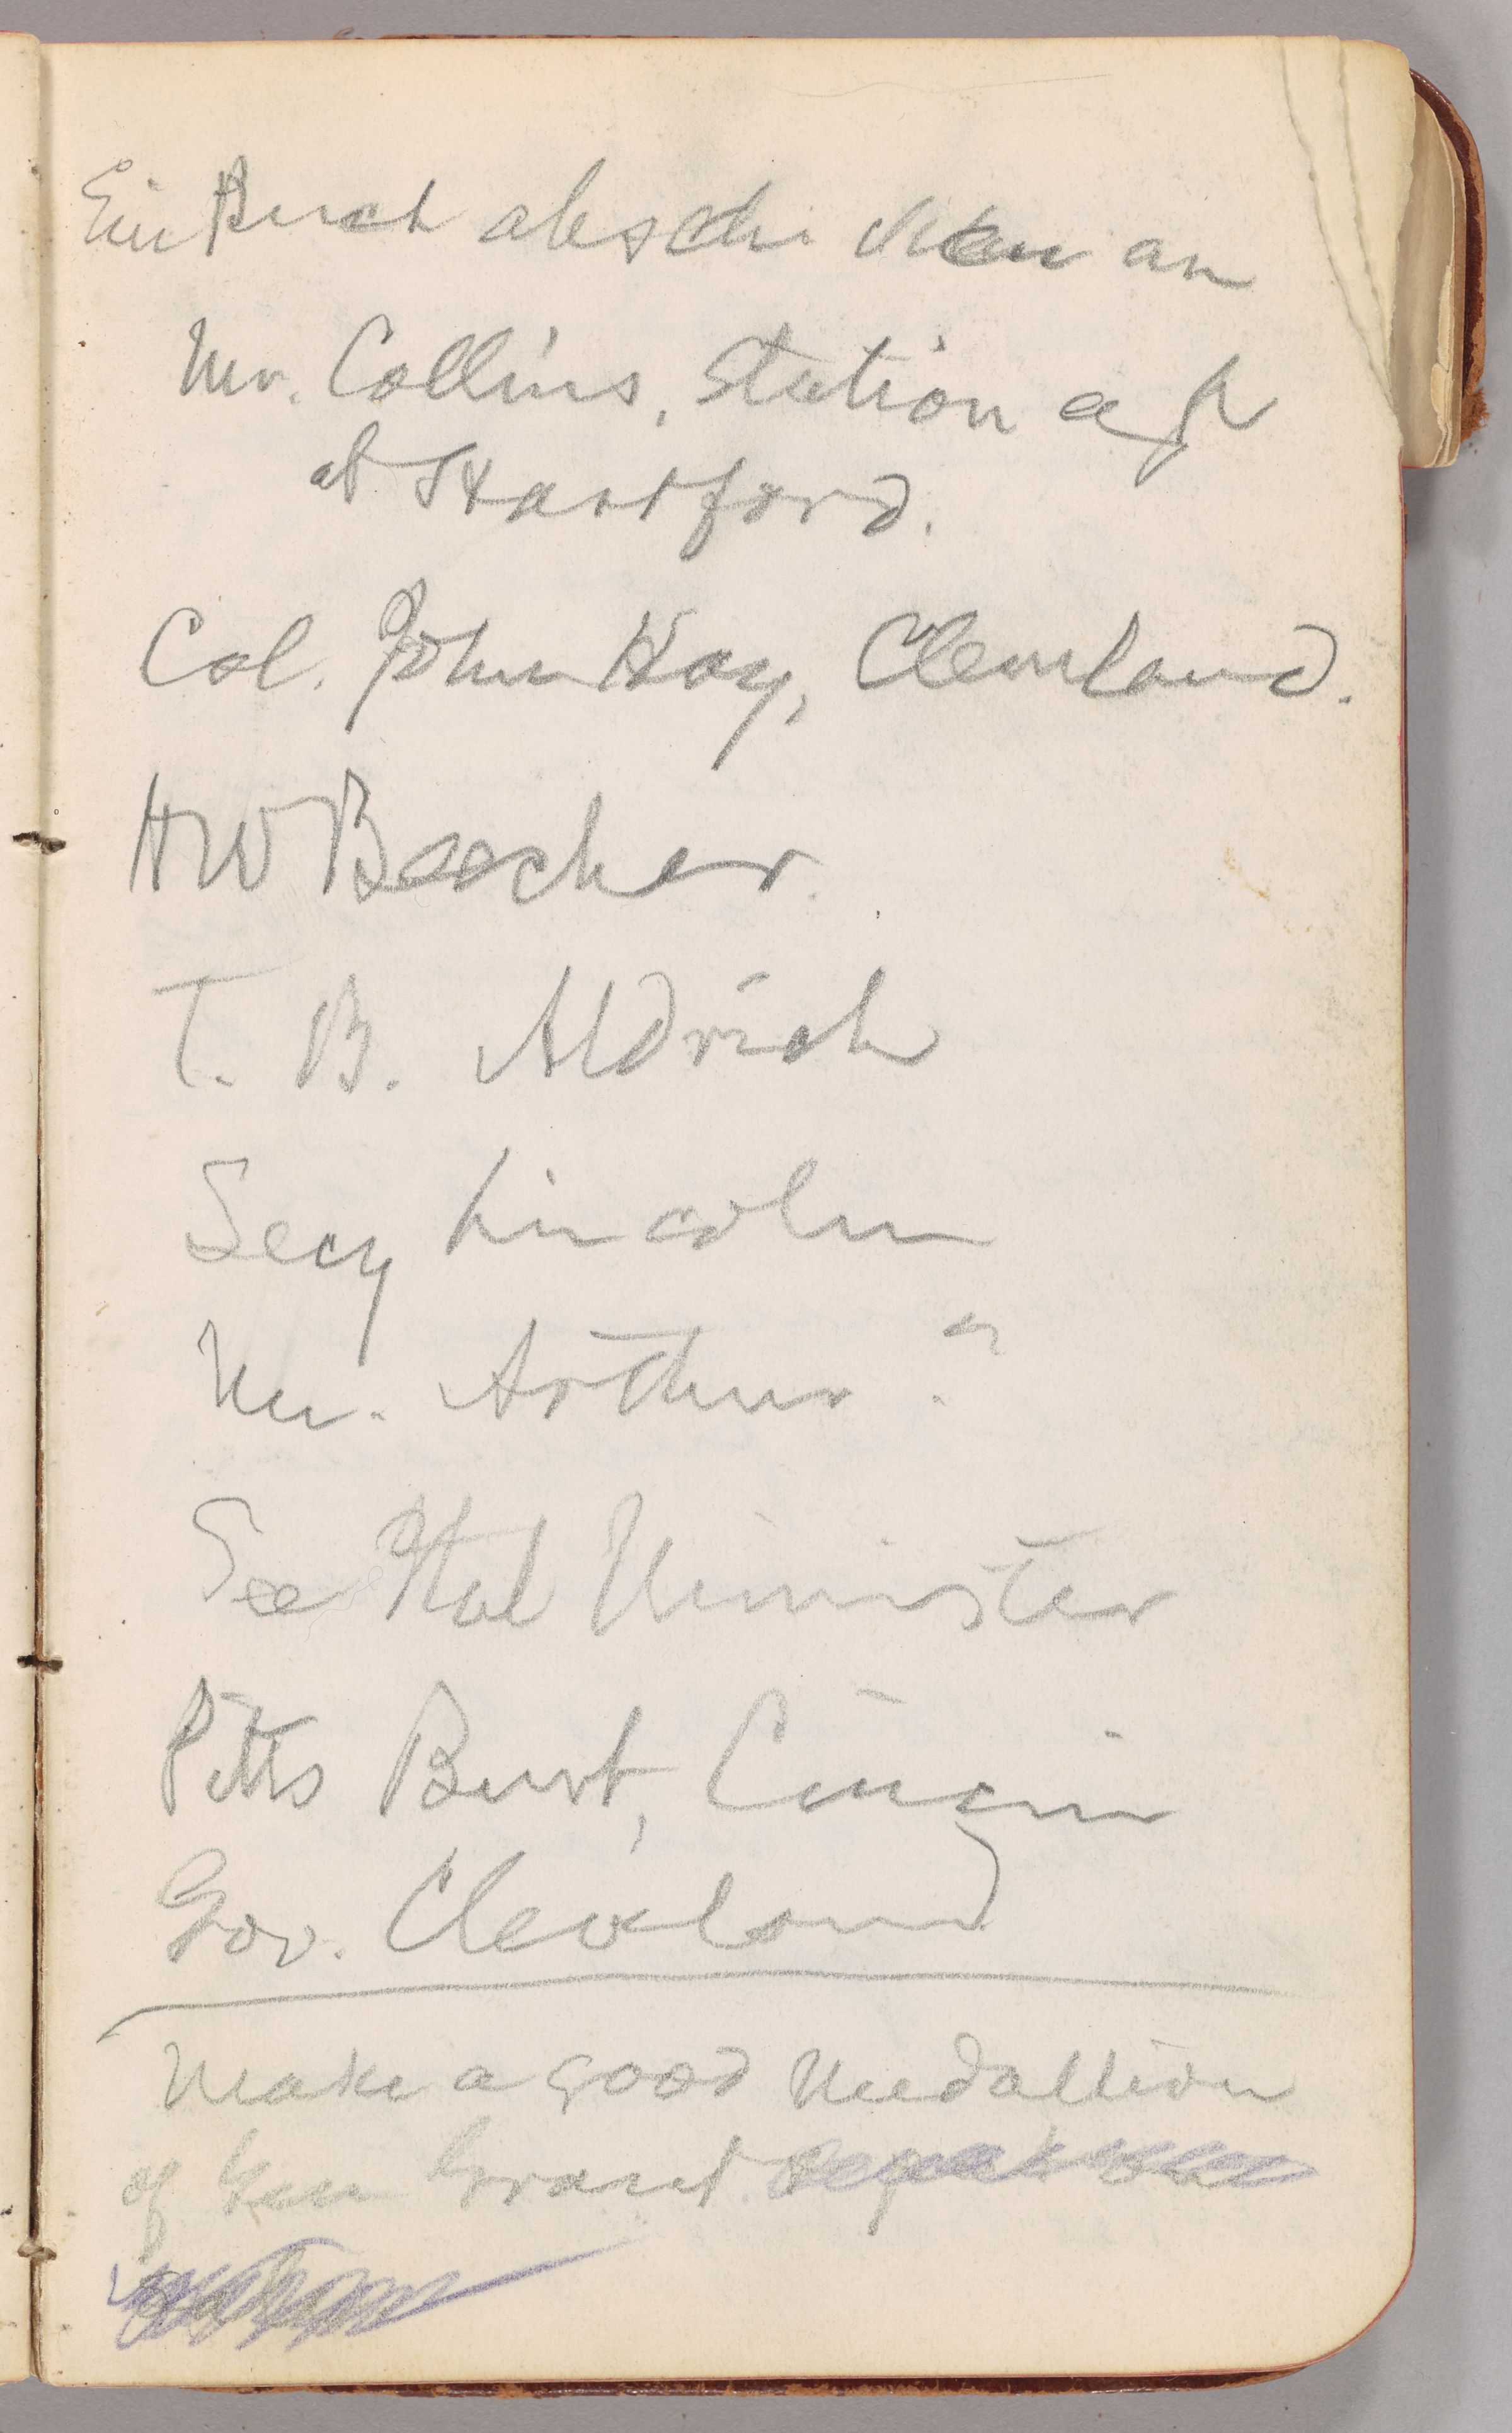 Ein Buch abschicken an
Mr. Collins, Station agt
at Hartford.
Col. John Hay, Cleveland.
H W Beecher.
T. B. Aldrich
Secy Lincoln
Mr. Arthur?
See Ital Minister
Pitts Burt, Cincin
Gov. Cleveland
Make a good medallion
of Gen Grant.